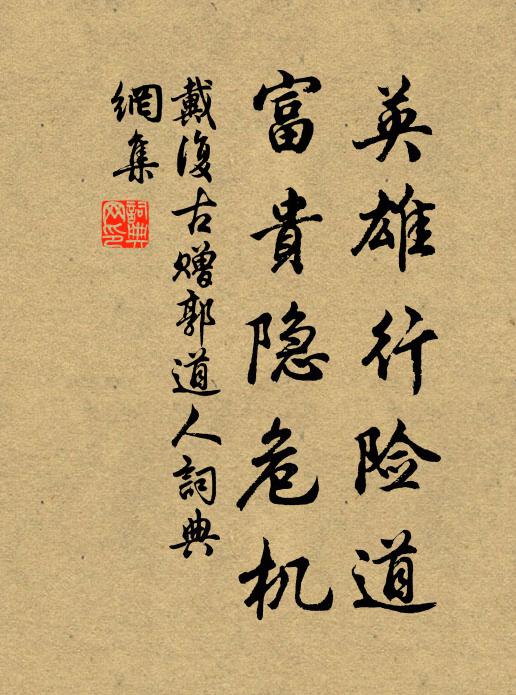 英雄行险道
富貴隐危机
戴復古赠郭道人詞典
網集
詞典
网印